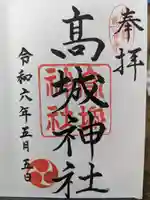 奉拝
髙城神社
令和六年五月五日